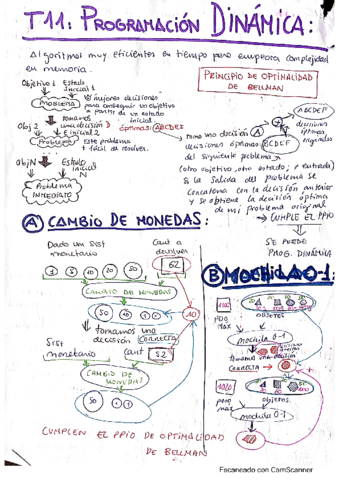 T11: PROGRAMACIÓN DINÁMICA:
Algoritmos muy eficientes en tiempo pero empeora complejidad
en memoria.
PRINCIPIO DE OPTIMALIDAD
DE BELLMAN
Objetivo 1 Estado
Inicial 1
PROBLEMA
"mejores decisiones"
para conseguir un objetivo
a partir de un estado
inicial
óptimas: ABCDEF
Obj 2 tomamos
una decisión
E inicial 2
Problema
Este problema
+ fácil de resolver.
ObjN Estado
Inicial
N
Problema
INMEDIATO
ABCDEF
A
decisiones
óptimas
Tomo una decisión
decisiones óptimas BCDEF
del siguiente problema
(otro objetivo, otro estado, entrada)
Si la salida del problema se
concatena con la decisión anterior
y se obtiene la decisión óptima
de mi problema original
→ CUMPLE EL PPIO
SE PUEDE
PROG. DINÁMICA
A CAMBIO DE MONEDAS:
Dado un Sist
monetario
Cant a
devolver
62
CAMBIO DE MONEDAS
50
10
tomamos una
decisión CORRECTA
Sist
monetario
Cant 52
CAMBIO DE
MONEDAS
50
CUMPLEN EL PPIO DE OPTIMALIDAD
DE BELLMAN
B MOCHILA 0-1:
objetos
PESO
MAX
mochila 0-1
tomamos una decisión
CORRECTA
peso
max
objetos.
mochila 0-1
Escaneado con CamScanner